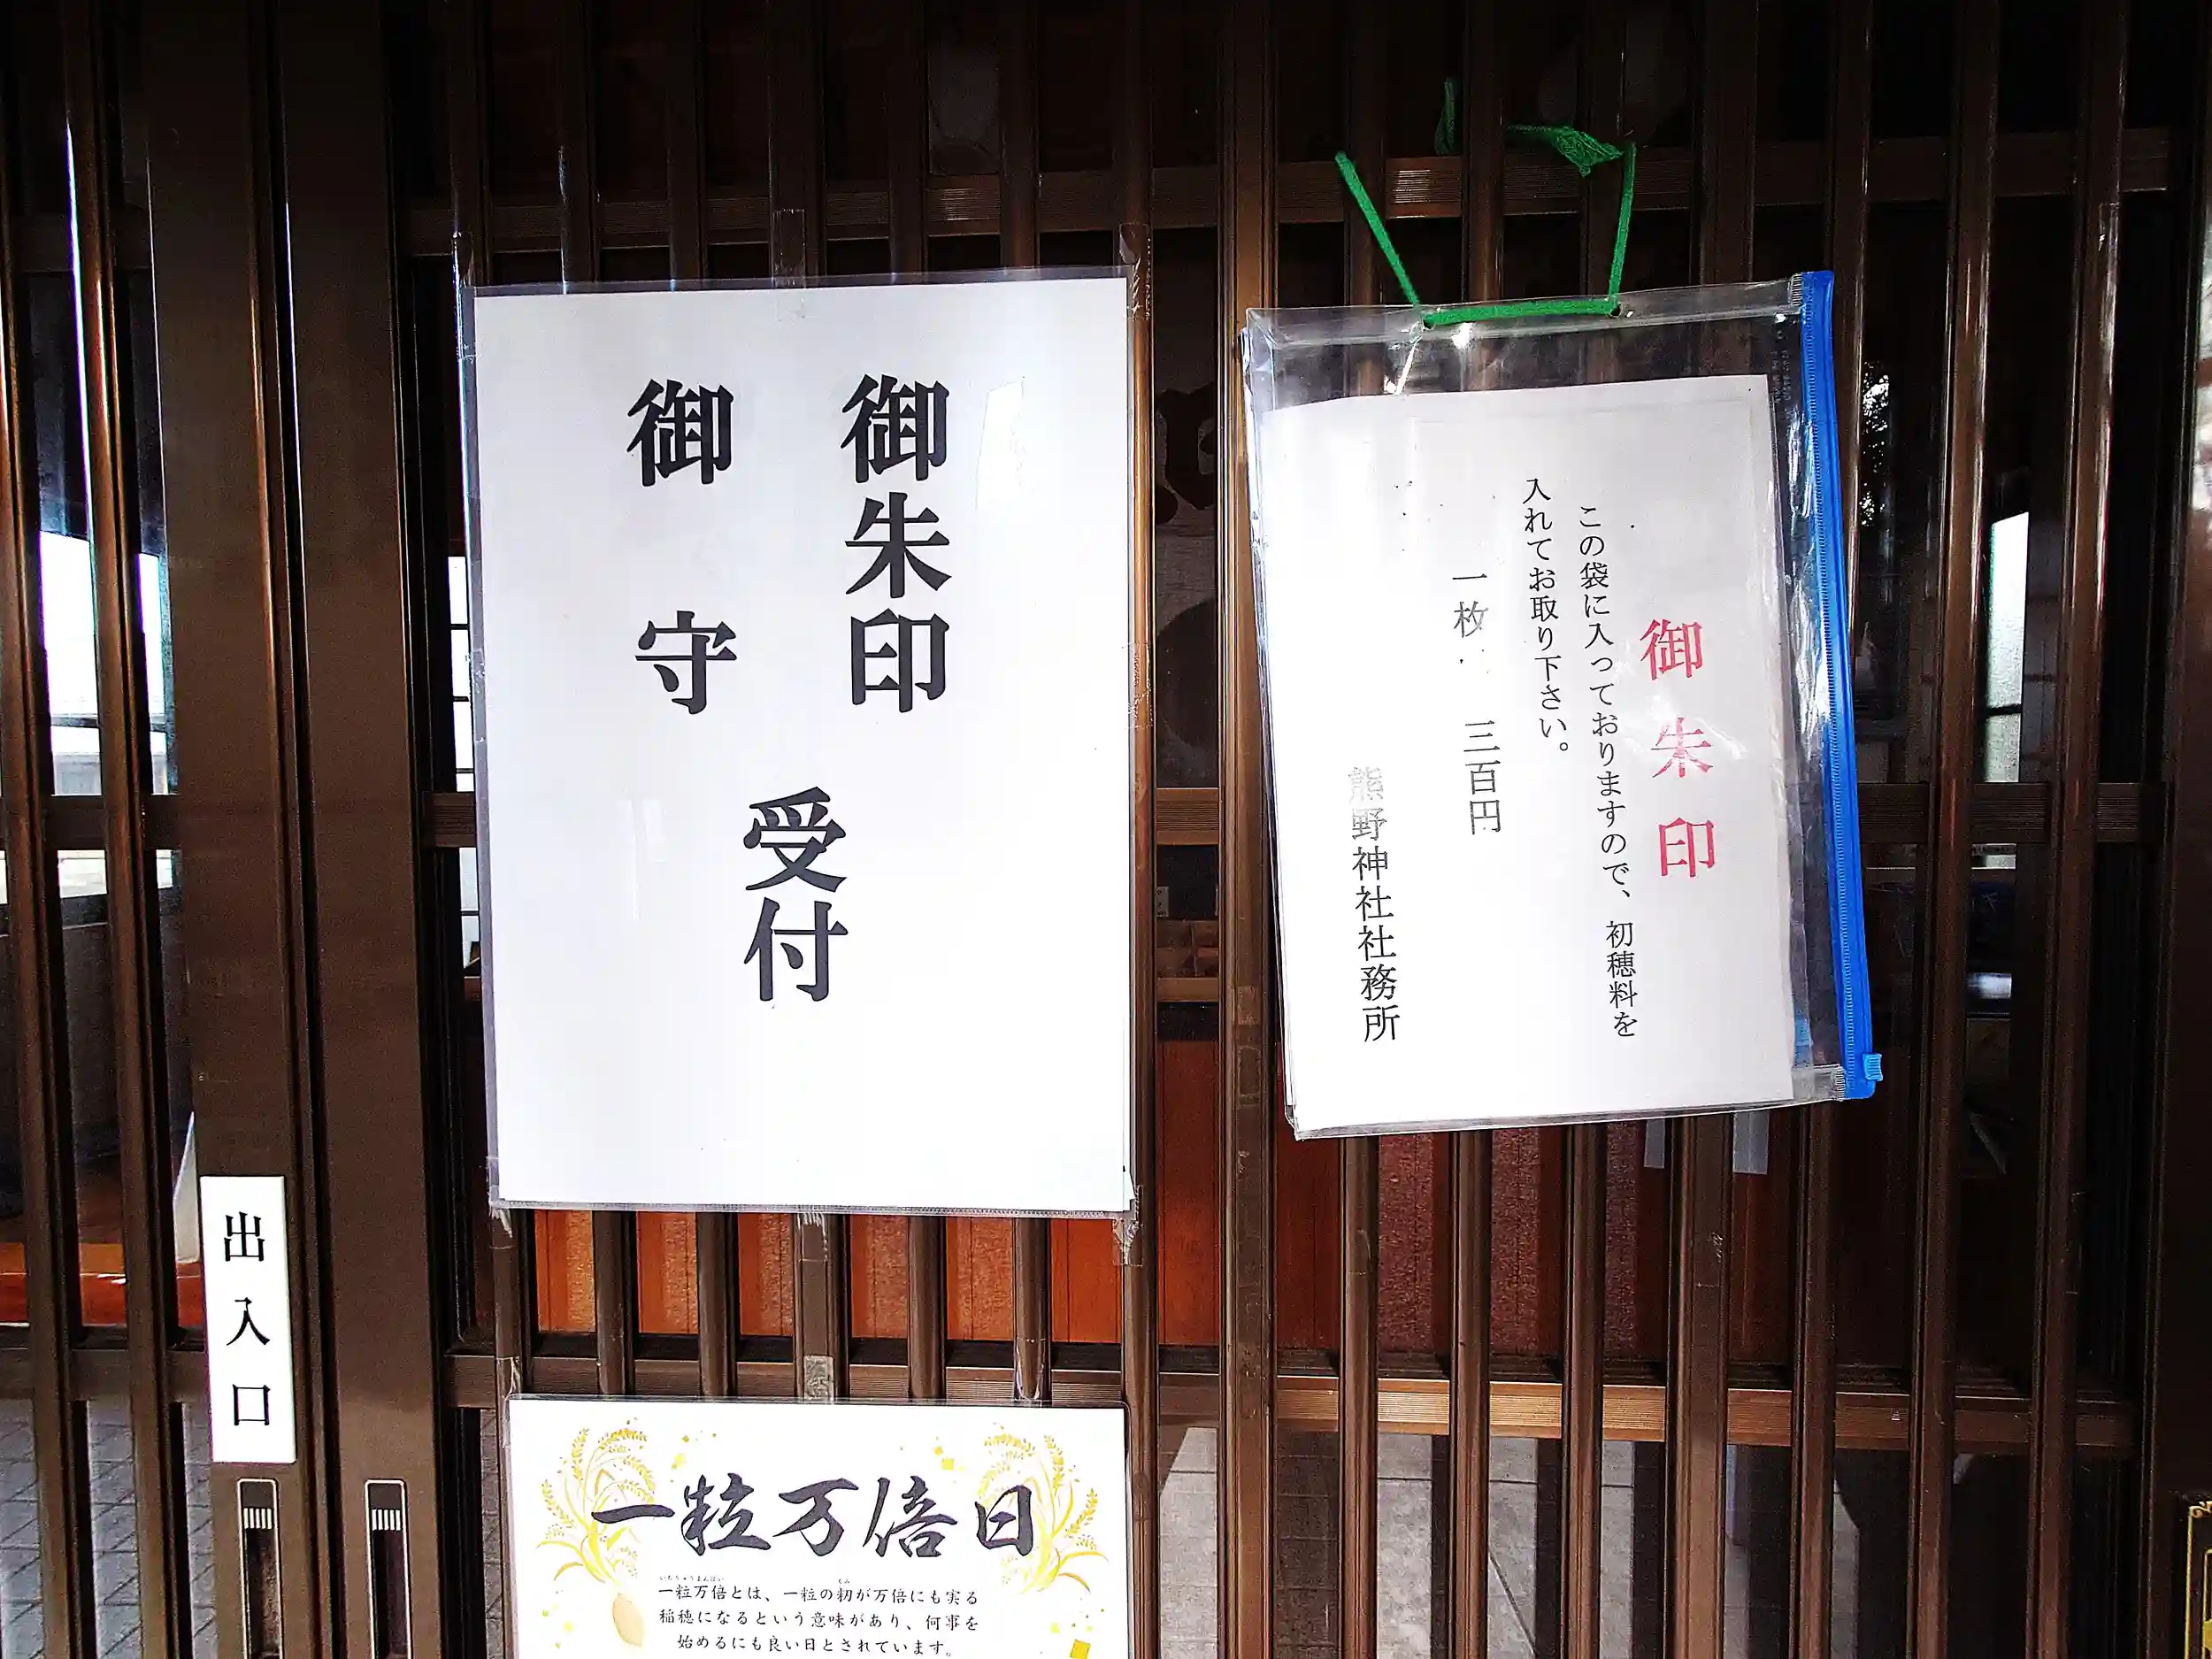 御朱印
御守
受付
御朱印
この袋に入っておりますので、初穂料を
入れてお取り下さい。
一枚 三百円
熊野神社社務所
出入口
一粒万倍日
いちりゅうまんばい
もみ
一粒万倍とは、一粒の籾が万倍にも実る
稲穂になるという意味があり、何事を
始めるにも良い日とされています。